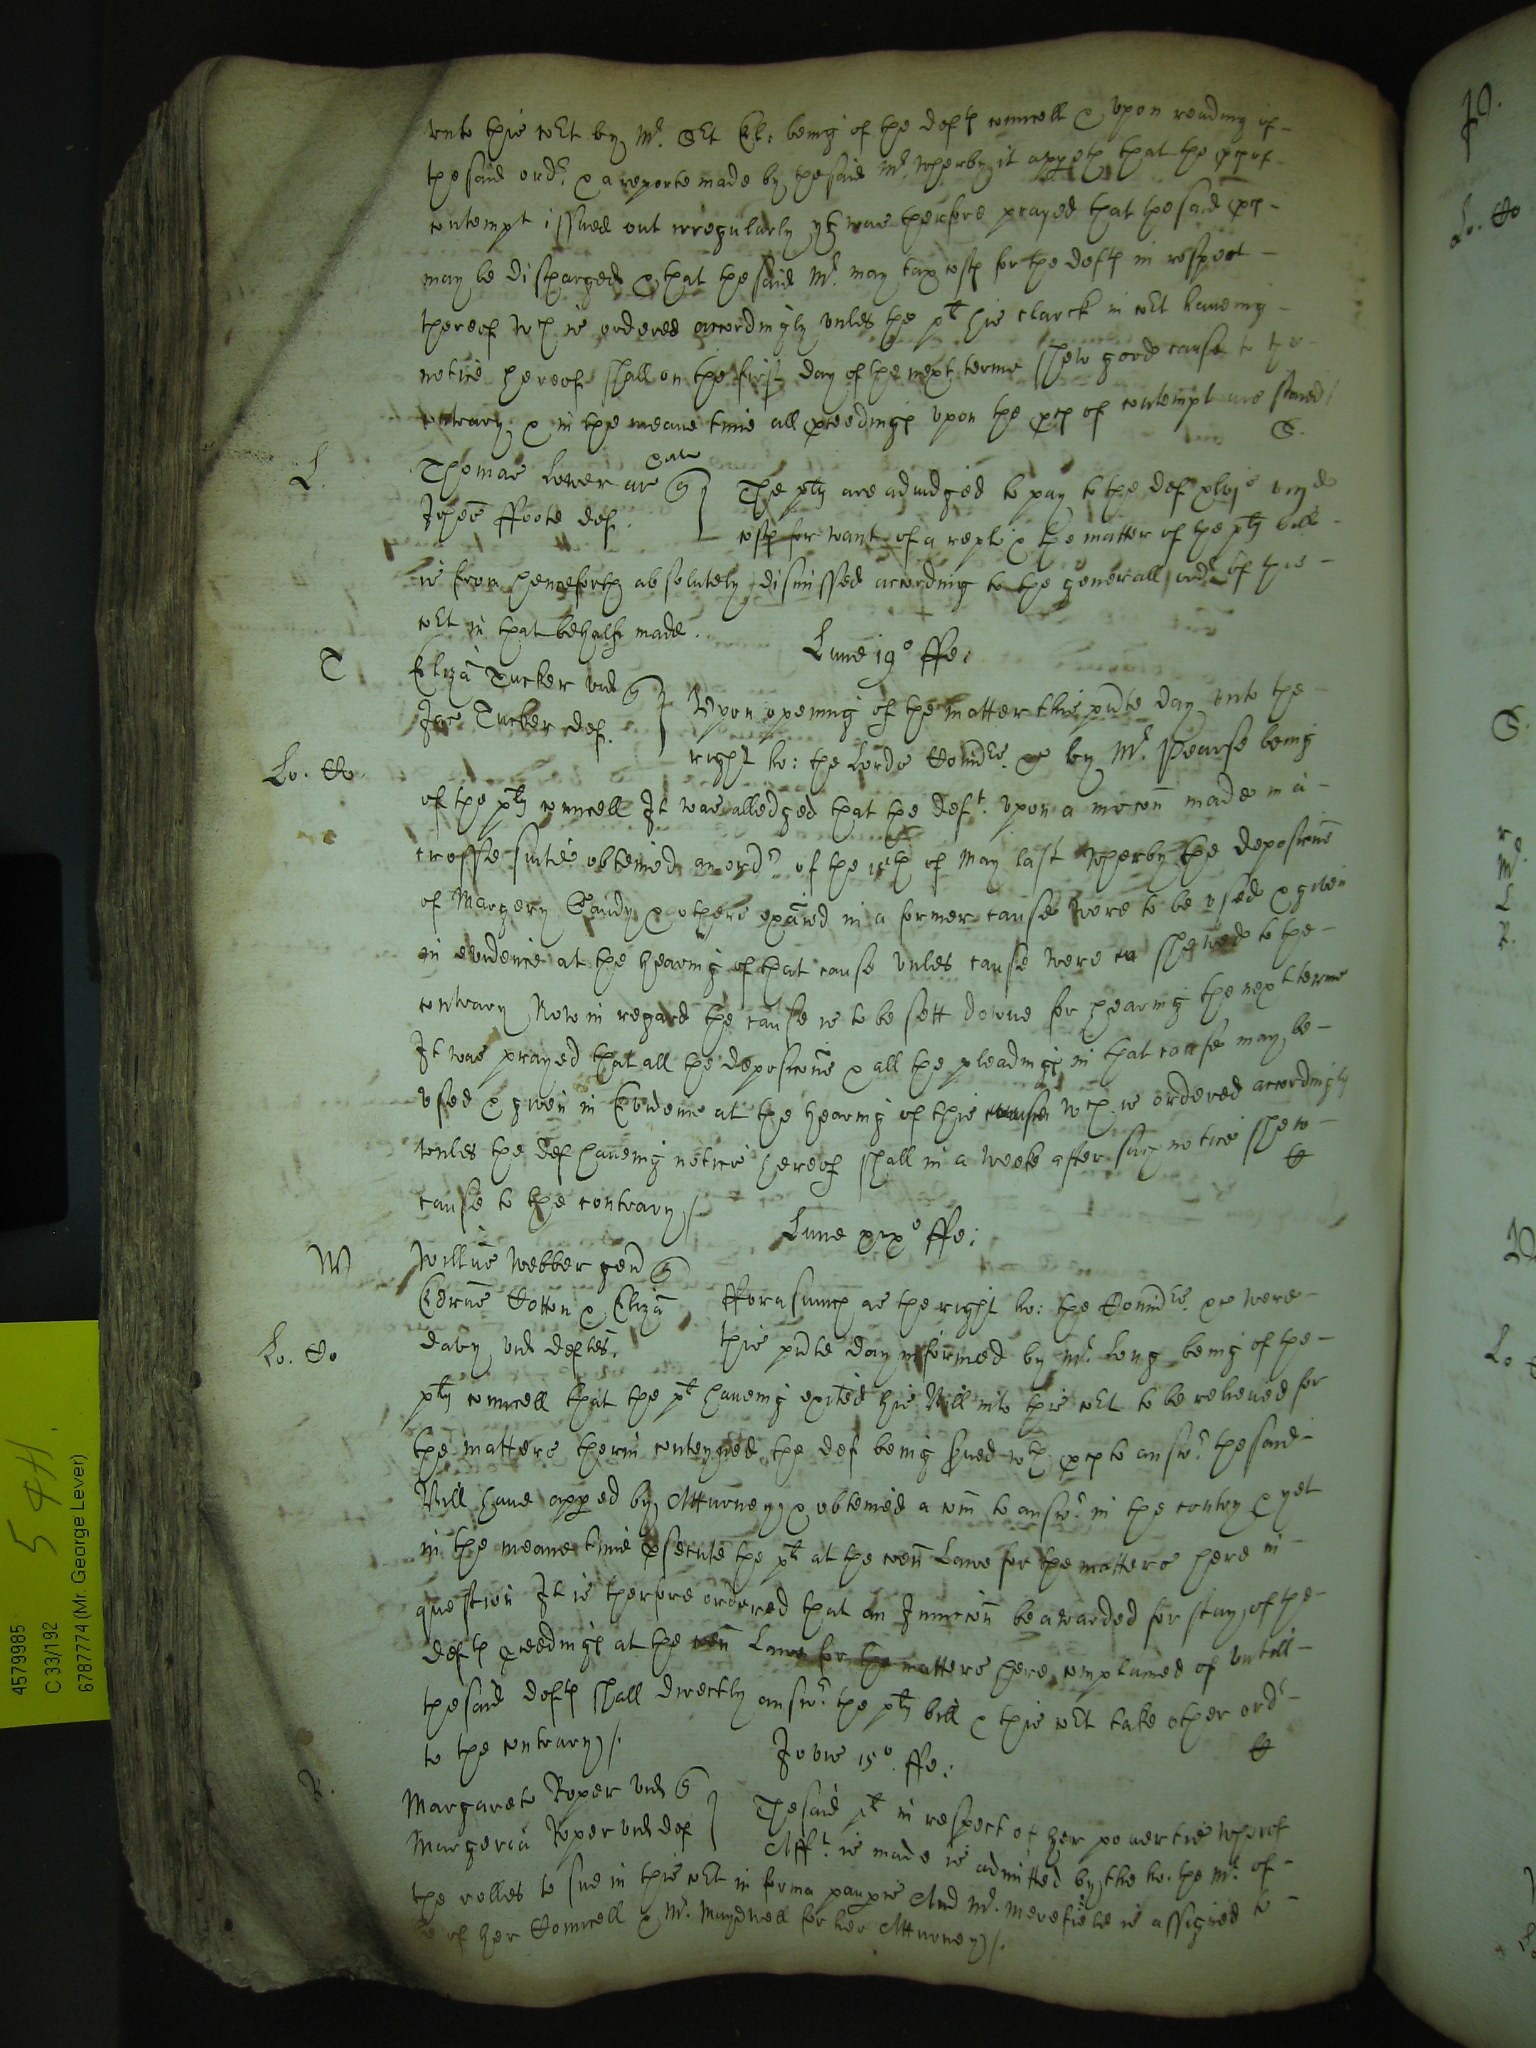 unto this Cot by Mr. Sct Ct: being of the defts councell & upon reading of
the said ordr. & a reporte made by the said Mr. wherby it appeth that the pces of
contempt issued out irregularly yt was therfore prayed that the said pces
may be discharged & that the said Mr. may tax costs for the defts in respect
thereof wch is ordered accordingly unles the plt his clarck in cot haveing
notice hereof shall on the first day of the next terme shew good cause to the
contrary & in the meane time all pceedings upon the pces of contempt are staied /
S.
L.
Thomas Lower ar
Johes ffoote def.
The plts are adiudged to pay to the def
costs for want of a repl & the matter of the plts bill
is from henceforth absolutely dismissed according to the generall ordr of this
cot in that behalfe made.
Lune 19o ffe:
T
Eliza Tucker vid
Tucker def.
Upon opening of the matter this pnte day unto the
right ho: the Lords Comrs. & by Mr. Pearse being
Lo. Co.
of the plts councell It was alledged that the deft. upon a mocon made in a
crosse suite obteined an ordr of the 15th of May last wherby the deposicons
of Margery Gaudy & others exaied in a former cause were to be used & given
in evidence at the hearing of that cause unles cause were shewed to the
contrary Now in regard the cause is to be sett downe for hearing the next terme
It was prayed that all the deposicons & all the pleadings in that cause may be
used & given in Evidence at the hearing of this cause wch is ordered accordingly
unles the def haveing notice hereof shall in a weeke after such notice shew
cause to the contrary /
Lune xixo ffe:
W
Willus Webber gen
Edrus Cotton & Eliza
Lo. Co
davy vid deftes.
fforasmuch as the right ho: the Comrs. were
this pnte day informed by Mr. Long being of the
plts councell that the plt haveing exited his Bill into this cot to be relieved for
the matters therin conteyned the def being served wth pces to answr the said
Bill have apped by Atturney & obteined a com to answr. in the contry & yet
in the meane time psecute the plt at the coen Lawe for the matters here in
question It is therfore ordered that an Iniuccon be awarded for stay of the
defts pceedings at the coen Lawe for the matters here complained of untill
the said defts shall directly answr. the plts bill & this cot take other ordr
to the contrary /.
Jovis 15o. ffe:
R.
Margareta Roper vid
Margeria Roper vid def
The said plt in respect of her povertie wherof
Afft. is made is admitted by the ho. the Mr. of
the rolles to sue in this cot in forma paupis And Mr. Merefield is assigned to
be of her Councell & Mr. Maydwell for her Atturney /.
4579985
C 33/192
6787774 (Mr. George Lever)
544.